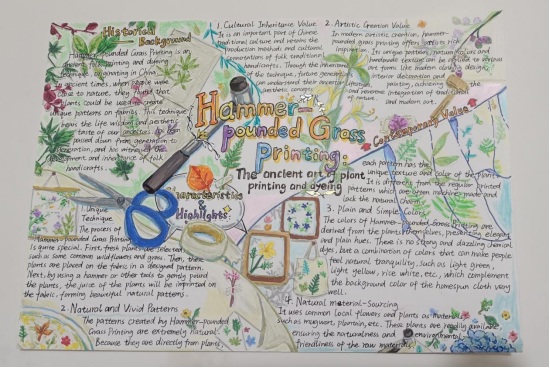 Historical
Background
Hammer-pounded Grass Printing is an
ancient printing and dyeing
technique, originating in China.
In ancient times, when people were
close to nature, they found that
plants could be used to create
unique patterns on fabrics. This technique
bears the life wisdom and aesthetic
taste of our ancestors. It has
passed down from generation to
generation, and has witnessed the
development and inheritance of folk
handicrafts.
1. Cultural Inheritance Value
It is an important part of Chinese
traditional culture and retains the
production methods and cultural
connotations of folk traditional
handicrafts. Through the inheritance
of the technique, future generations
can understand their ancestors'
aesthetic concepts
and reverence
of nature.
2. Artistic Creation Value
In modern artistic creation, hammer-
pounded grass printing offers artists rich
inspiration. Its unique patterns, natural colors and
handmade texture can be applied to various
art forms like modern clothing design,
interior decoration and
painting, achieving the
integration of traditional
and modern art.
Contemporary Value
Hammer-
pounded Grass
Printing:
The ancient art of plant
printing and dyeing
Characteristics
&
Highlights
1. Unique
Technique
The process of
Hammer-pounded Grass Printing
is quite special. First, fresh plants are selected,
such as common wildflowers and grass. Then, these
plants are placed on the fabric in a designed pattern.
Next, by using a hammer or other tools to gently pound
the plants, the juice of the plants will be imprinted on
the fabric, forming beautiful natural patterns.
2. Natural and Vivid Patterns
The patterns created by Hammer-pounded
Grass Printing are extremely natural.
Because they are directly from plants,
each pattern has the
unique texture and color of the plant.
It is different from the regular printed
patterns which are often machine-made and
lack the natural charm.
3. Plain and Simple Color
The colors of Hammer-pounded Grass Printing are
derived from the plants themselves, presenting elegant
and plain hues. There is no strong and dazzling chemical
dyes, but a combination of colors that can make people
feel natural tranquility, such as light green,
light yellow, rice white, etc, which complement
the background color of the homespun cloth very
well.
4. Natural material-Sourcing
It uses common local flowers and plants as materials,
such as mugwort, plantain, etc. These plants are readily available,
ensuring the naturalness and environmental
friendliness of the raw materials.